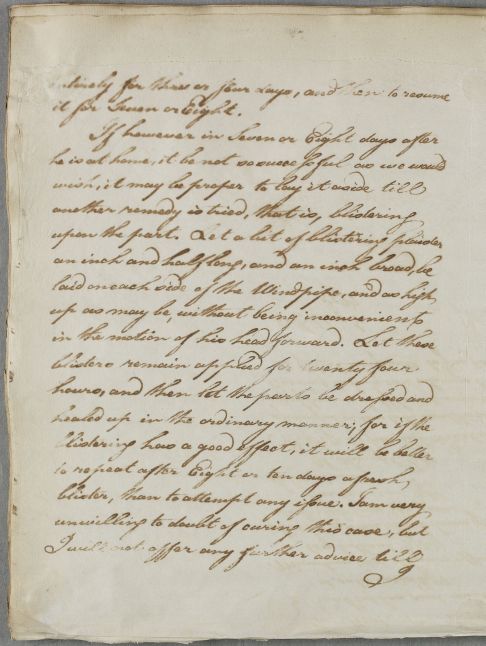 entirely for three or four days, and then to resume
it for Seven or Eight.
If however in Seven or Eight days after
he is at home, it be not so successful as we would
wish, it may be proper to lay it aside till
another remedy is tried, that is, blistering
upon the part. Let a bit of blistering plaister
an inch and half long, and an inch broad, be
laid on each side of the Windpipe, and as high
up as may be, without being inconvenient
in the motion of his head forward. Let these
blisters remain applied for twenty four
hours, and then let the parts be dressed and
healed up in the ordinary manner; for if the
blistering has a good effect, it will be better
to repeat after Eight or ten days a fresh
blister, than to attempt any issue. I am very
unwilling to doubt of curing this case, but
I will not offer any further advice till
I